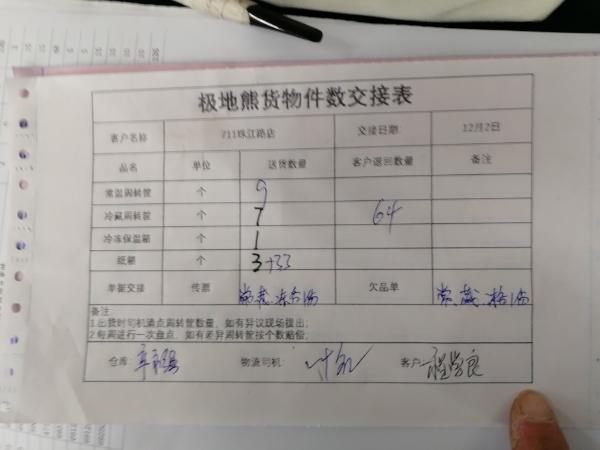 极地熊货物件数交接表
客户名称 711珠江路店 交接日期 12月2日
品名 单位 送货数量 客户退回数量 备注
常温周转筐 个 9
冷藏周转筐 个 7 64
冷冻保温箱 个 1
纸箱 个 3+33
单据交接 传票 欠品单
备注:
1.出货时司机清点周转筐数量，如有异议现场提出;
2.每周进行一次盘点，如有差异周转筐按个数赔偿。
仓库: 物流司机: 客户: